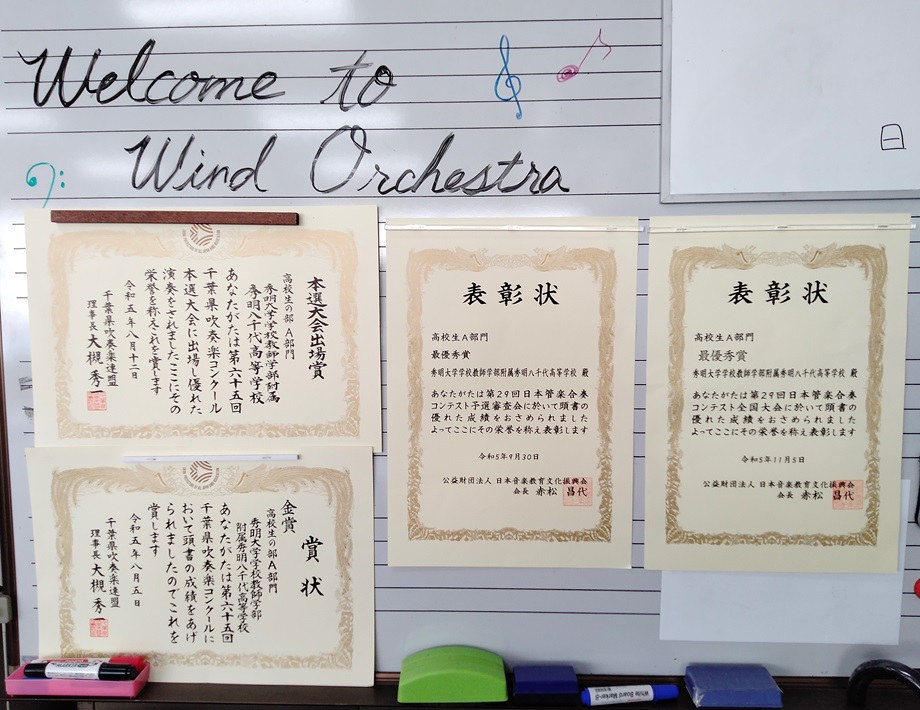 Welcome to
Wind Orchestra
日
本選大会出場賞
高校生の部 A部門
秀明大学学校教師学部附属
秀明八千代高等学校
あなたがたは第六十五回
千葉県吹奏楽コンクール
本選大会に出場し優れた
演奏をされましたここにその
栄誉を称えこれを賞します
令和五年八月十二日
千葉県吹奏楽連盟
理事長 大槻秀一
表彰状
高校生A部門
最優秀賞
秀明大学学校教師学部附属秀明八千代高等学校 殿
あなたがたは第29回日本管楽合奏
コンテスト予選審査会に於いて頭書の
優れた成績をおさめられました
よってここにその栄誉を称え表彰します
令和5年9月30日
公益財団法人 日本音楽教育文化振興会
会長 赤松 昌代
表彰状
高校生A部門
最優秀賞
秀明大学学校教師学部附属秀明八千代高等学校 殿
あなたがたは第29回日本管楽合奏
コンテスト全国大会に於いて頭書の
優れた成績をおさめられました
よってここにその栄誉を称え表彰します
令和5年11月5日
公益財団法人 日本音楽教育文化振興会
会長 赤松 昌代
賞状
金賞
高校生の部 A部門
秀明大学学校教師学部
附属秀明八千代高等学校
あなたがたは第六十五回
千葉県吹奏楽コンクールに
おいて頭書の成績をあげ
られましたのでこれを
賞します
令和五年八月五日
千葉県吹奏楽連盟
理事長 大槻秀一
White Board Marker